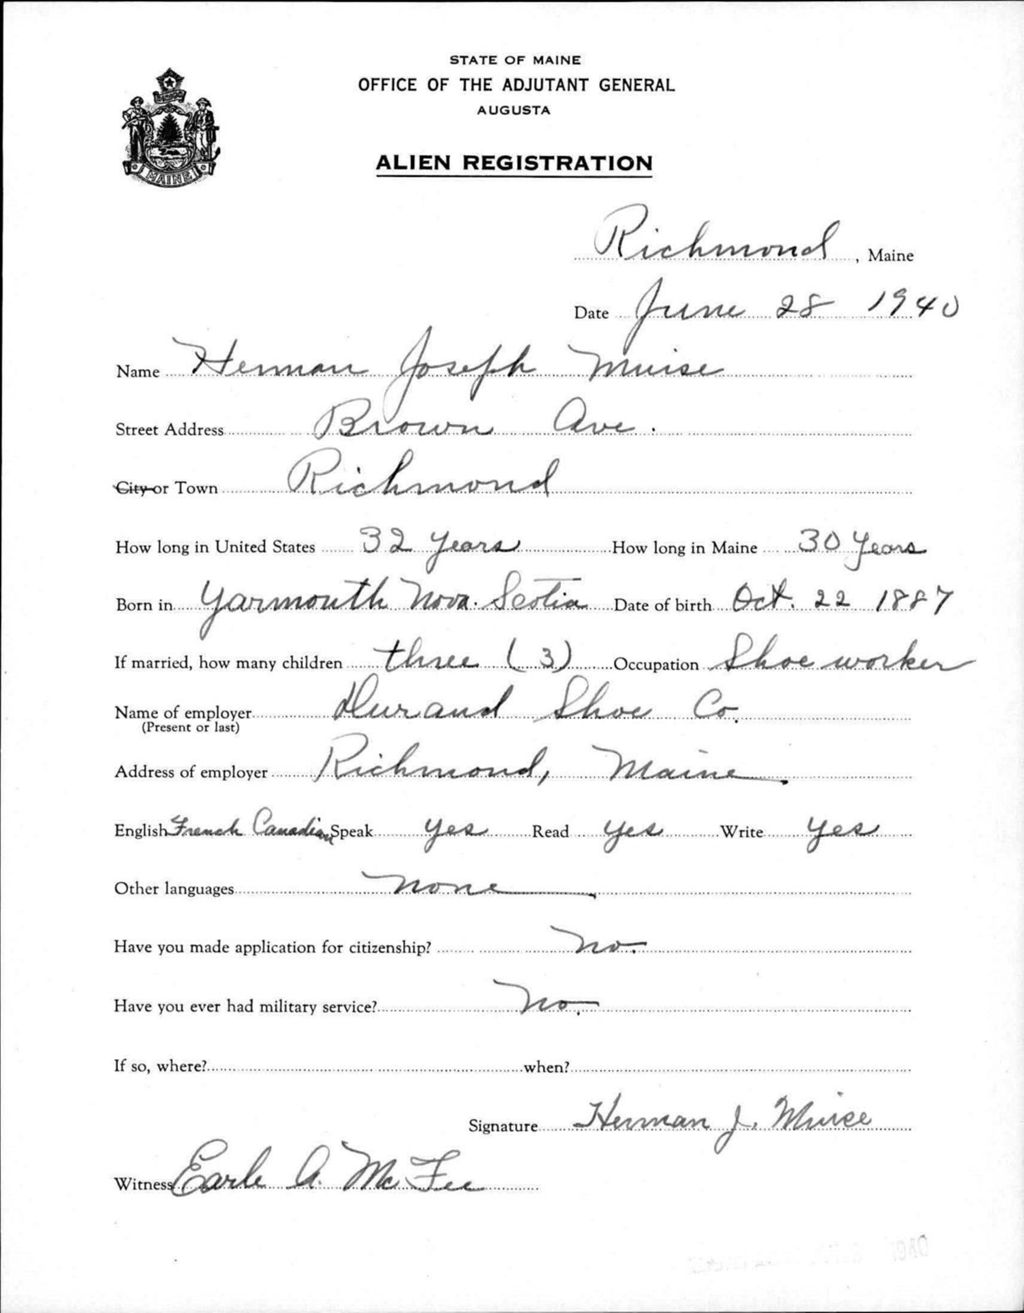 STATE OF MAINE
OFFICE OF THE ADJUTANT GENERAL
AUGUSTA
ALIEN REGISTRATION
MAINE
Richmond, Maine
Date June 28 1940
Name Herman Joseph Muise
Street Address Brown Ave.
City or Town Richmond
How long in United States 32 years How long in Maine 30 Years
Born in Yarmouth Nova. Scotia Date of birth Oct. 22 1887
If married, how many children three (3) Occupation Shoe worker
Name of employer Durand Shoe Co.
(Present or last)
Address of employer Richmond, Maine.
English French Canadian Speak yes Read yes Write yes
Other languages none
Have you made application for citizenship? No.
Have you ever had military service? No.
If so, where? when?
Signature Herman J. Muise
Witness Earle A. McFee